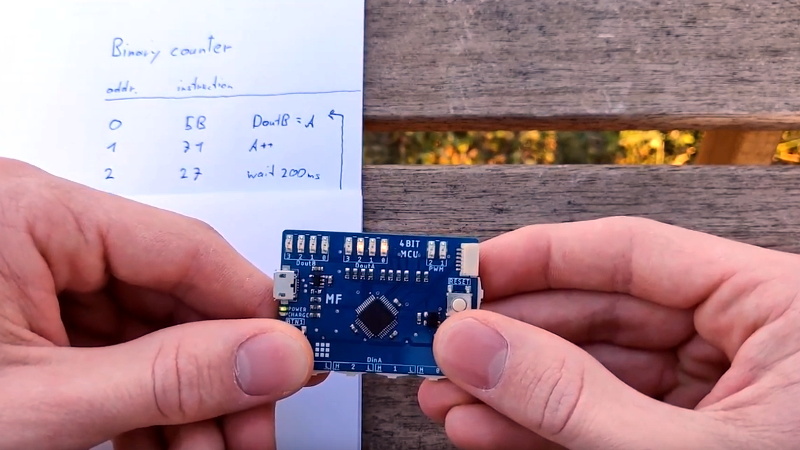 Binary counter
addr. instruction
0 5B DoutB = A
1 71 A++
2 27 wait 200ms
3 2 1 0 3 2 1 0 4BIT
DoutB DoutA MCU 2 1
PWM
RESET
MF
POWER
CHARGE
DinA
L H 2 L H 1 L H